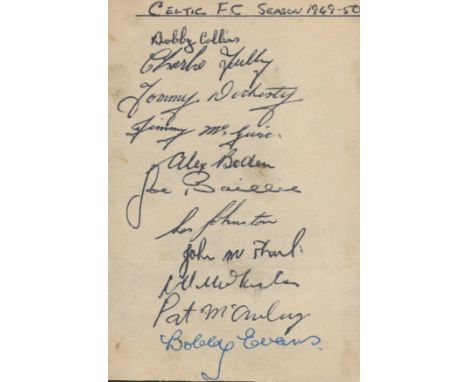 CELTIC FC SEASON 1949-50
Bobby Collins
Charlie Tully
Tommy Docherty
Jimmy
Alex Boden
Joe Baillie
Les Johnston
John
Pat McAuley
Bobby Evans.